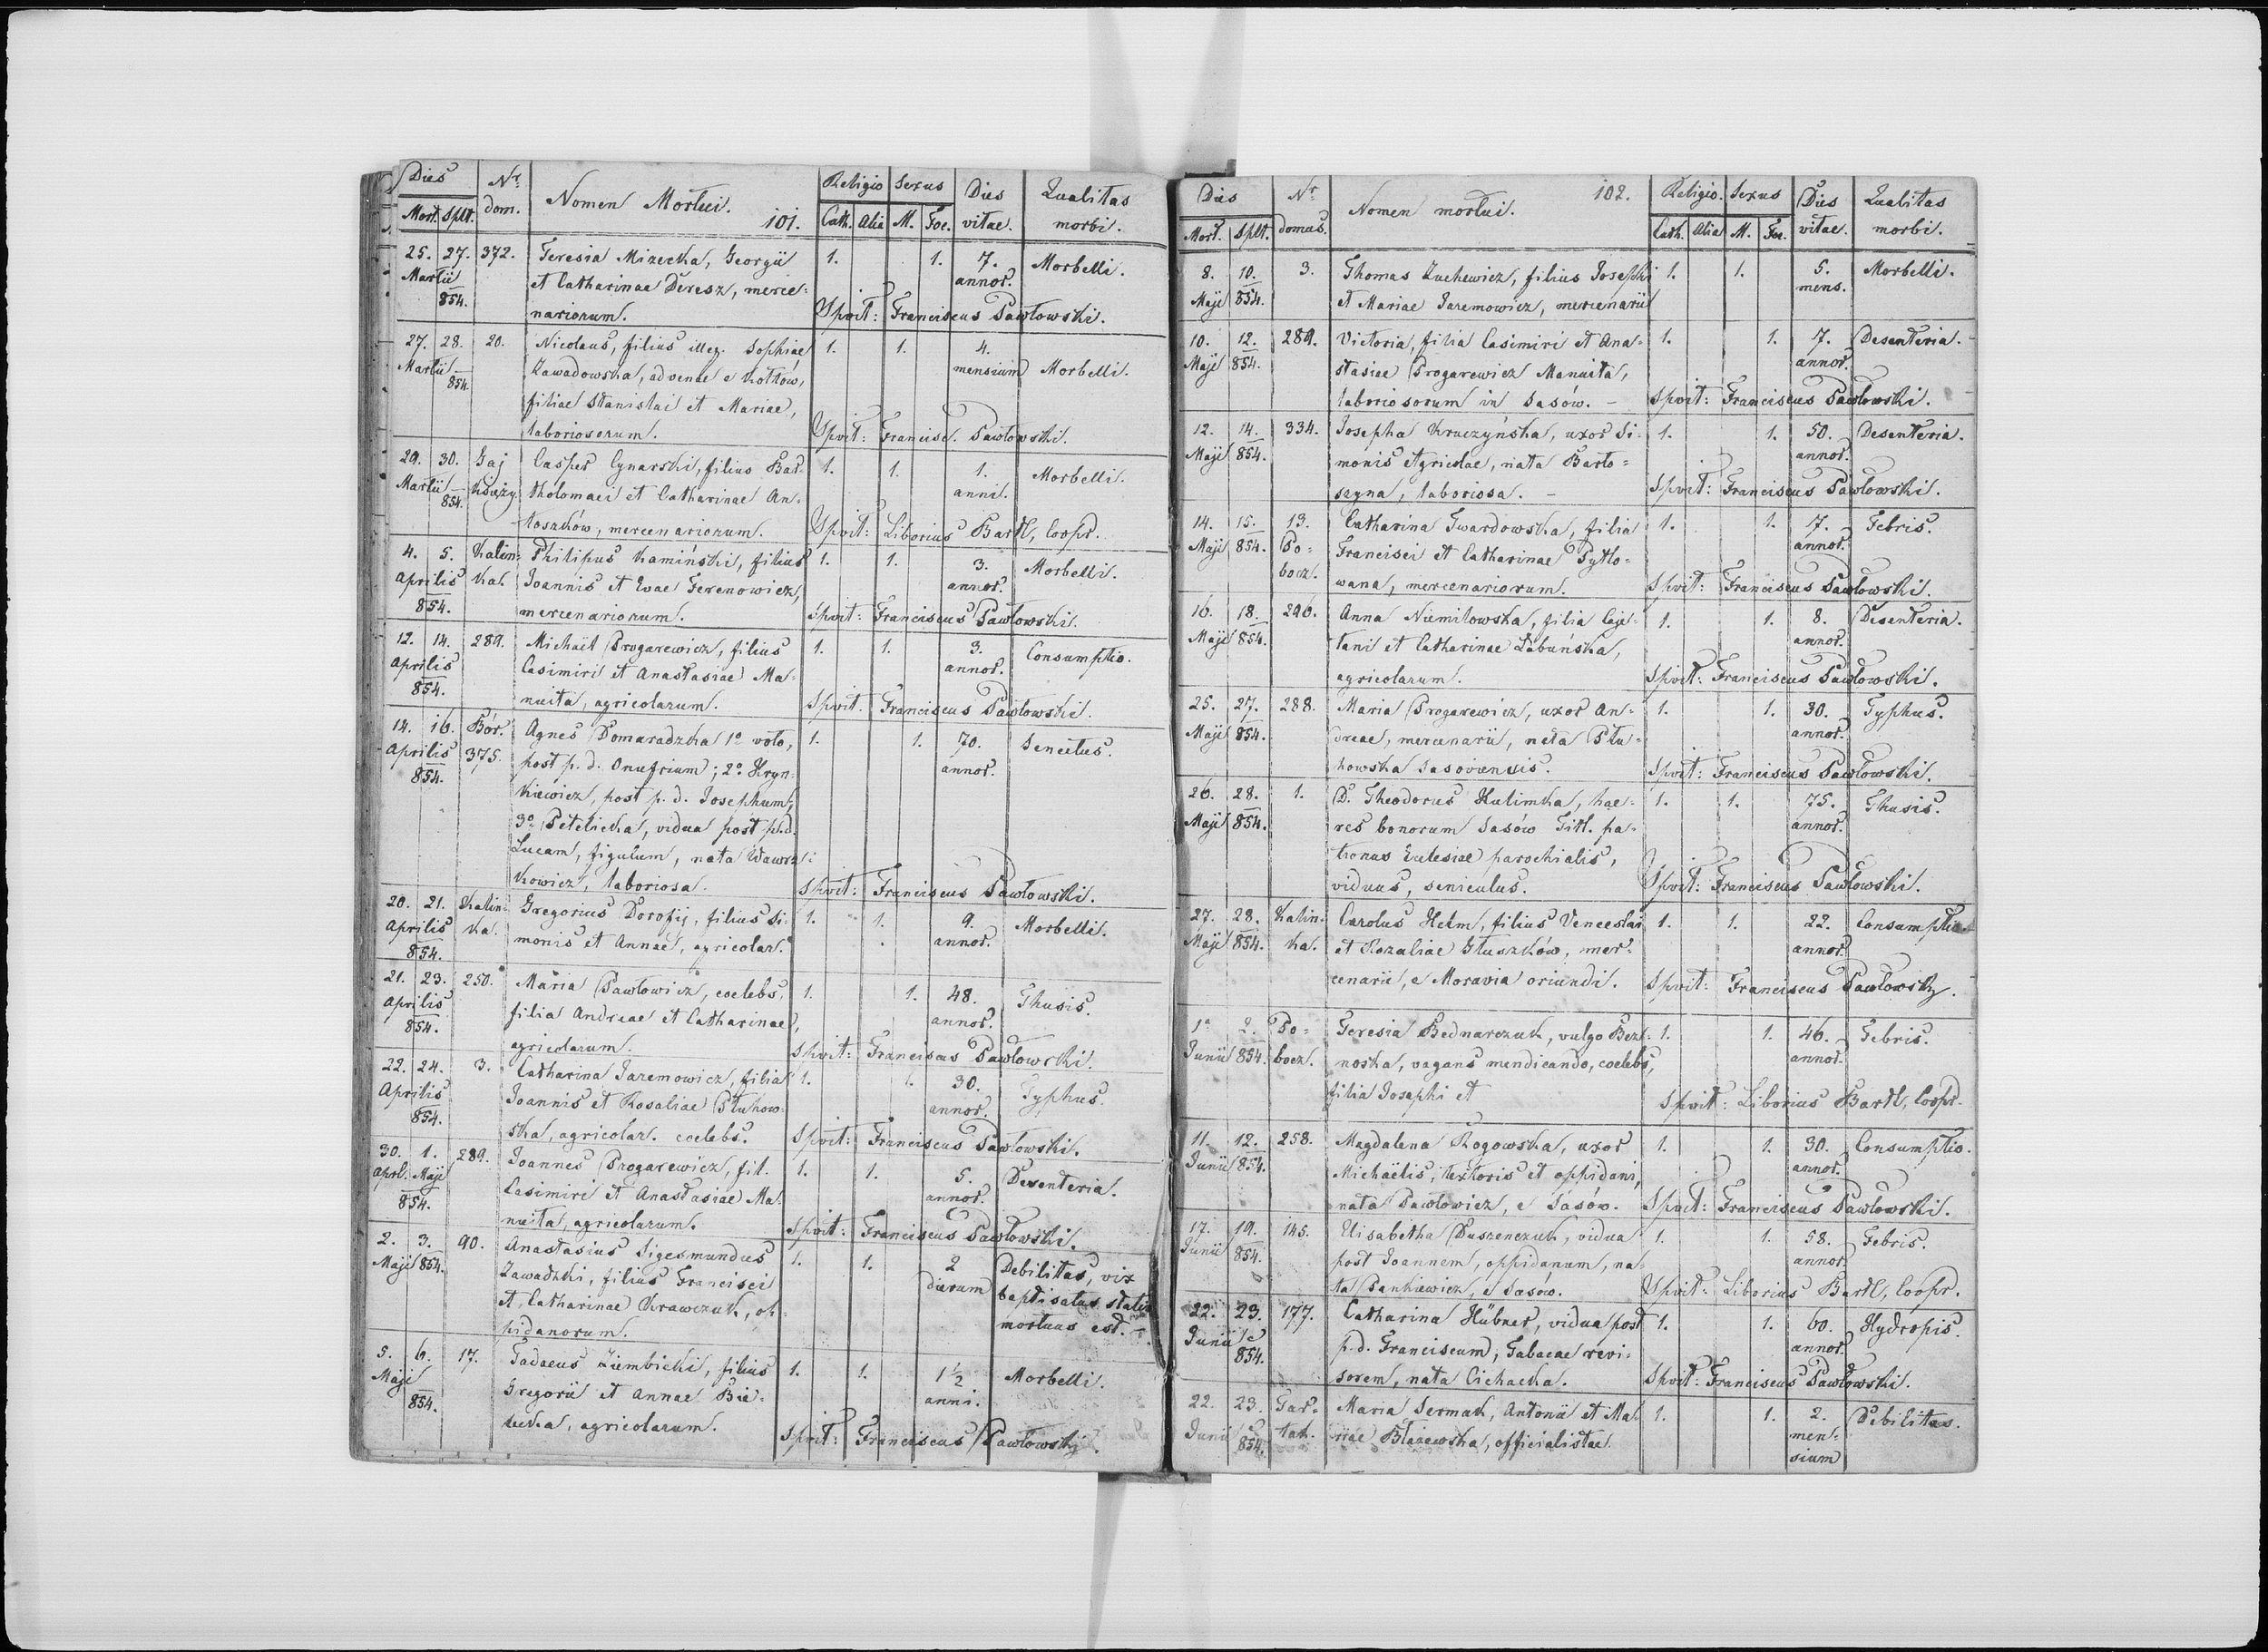 Dies Nr. dom. Nomen Mortui. 101. Religio Sexus Dies vitae. Qualitas morbi.
Mort. Splt. Cath. Alia M. Foe.
25. 27. 372. Teresia Mizecka, Georgii 1. 1. 7. Morbelli.
Martii 854. et Catharinae Deresz, merce= annor.
nariorum. Spvit: Franciscus Pawłowski.
27. 28. 20. Nicolaus, filius illeg. Sophiae 1. 1. 4.
Martii 854. Zawadowska, advenae e Kołtów, mensium Morbelli.
filiae Stanislai et Mariae,
laboriosorum. Spvit: Francisc. Pawłowski.
29. 30. Gaj Casper Cynarski, filius Bar= 1. 1. 1. Morbelli.
Martii 854. Księży. tholomaei et Catharinae An= anni.
toszków, mercenariorum. Spvit: Liborius Bartl, Coopr.
4. 5. Kalin= Philipus Kamiński, filius 1. 1. 3. Morbelli.
Aprilis ka. Joannis et Evae Ferenowicz, annor.
854. mercenariorum. Spvit: Franciscus Pawłowski.
12. 14. 289. Michaël Progarewicz, filius 1. 1. 3. Consumptio.
Aprilis Casimiri et Anastasiae Ma= annor.
854. nuita, agricolarum. Spvit. Franciscus Pawłowski.
14. 16. Bór. Agnes Domaradzka 1o voto, 1. 1. 70. Senectus.
Aprilis 375. post p. d. Onufrium; 2o Hryn= annor.
854. kiewicz, post p. d. Josephum,
3o Petelicka, vidua post p. d.
Lucam, figulum, nata Wawrz=
kowicz, laboriosa. Spvit: Franciscus Pawłowski.
20. 21. Kalin= Gregorius Dorofij, filius Si= 1. 1. 9. Morbelli.
Aprilis ka. monis et Annae, agricolar. annor.
854.
21. 23. 250. Maria Pawłowicz, coelebs, 1. 1. 48. Thusis.
Aprilis filia Andreae et Catharinae, annor.
854. agricolarum. Spvit: Franciscus Pawłowski.
22. 24. 3. Catharina Jaremowicz, filia 1. 1. 30. Typhus.
Aprilis Joannis et Rosaliae Płuhow= annor.
854. ska, agricolar. coelebs. Spvit: Franciscus Pawłowski.
30. 1. 289. Joannes Progarewicz, fil. 1. 1. 5. Desenteria.
Aprl. Maji Casimiri et Anastasiae Ma= annor.
854. nuita, agricolarum. Spvit: Franciscus Pawłowski.
2. 3. 90. Anastasius Sigesmundus 1. 1. 2 Debilitas, vix
Maji 854. Zawadzki, filius Francisci dierum baptisatus statim
et Catharinae Krawczuk, op= mortuus est.
pidanorum.
5. 6. 17. Tadaeus Ziembicki, filius 1. 1. 1 1/2 Morbelli.
Maji Gregorii et Annae Bie= anni.
854. lecka, agricolarum. Spvit: Franciscus Pawłowski.
Dies Nr. domus. Nomen mortui. 102. Religio. Sexus Dies vitae. Qualitas morbi.
Mort. Splt. Cath. Alia M. Foe.
8. 10. 3. Thomas Zuchewicz, filius Josephi 1. 1. 5. Morbelli.
Maji 854. et Mariae Jaremowicz, mercenarii mens.
10. 12. 289. Victoria, filia Casimiri et Ana= 1. 1. 7. Desenteria.
Maji 854. stasiae Progarewicz Manuita, annor.
laboriosorum in Sasów. Spvit: Franciscus Pawłowski.
12. 14. 334. Josepha Kruczyńska, uxor Si= 1. 1. 50. Desenteria.
Maji 854. monis Agricolae, nata Barto= annor.
szyna, laboriosa. Spvit: Franciscus Pawłowski.
14. 15. 13. Catharina Twardowska, filia 1. 1. 7. Febris.
Maji 854. Po= Francisci et Catharinae Pytlo= annor.
bocz. wana, mercenariorum. Spvit: Franciscus Pawłowski.
16. 18. 296. Anna Niemiłowska, filia Caje= 1. 1. 8. Desenteria.
Maji 854. tani et Catharinae Labuńska, annor.
agricolarum. Spvit: Franciscus Pawłowski.
25. 27. 288. Maria Progarewicz, uxor An= 1. 1. 30. Typhus.
Maji 854. dreae, mercenarii, nata Płu= annor.
howska Sasoviensis. Spvit: Franciscus Pawłowski.
26. 28. 1. D. Theodorus Kulimka, hae= 1. 1. 75. Thusis.
Maji 854. res bonorum Sasów Titl. pa= annor.
tronus Ecclesiae parochialis,
viduus, seniculus. Spvit: Franciscus Pawłowski.
27. 28. Kalin= Carolus Helm, filius Venceslai 1. 1. 22. Consumptio
Maji 854. ka. et Rozaliae Głuszków, mer= annor.
cenarii, e Moravia oriundi. Spvit: Franciscus Pawłowski.
1a 2. Po= Teresia Bednarczuk, vulgo Bez= 1. 1. 46. Febris.
Junii 854. bocz. noska, vagans mendicando, coelebs, annor.
filia Josephi et Spvit: Liborius Bartl, Coopr.
11. 12. 258. Magdalena Rogowska, uxor 1. 1. 30. Consumptio.
Junii 854. Michaëlis, textoris et oppidani, annor.
nata Pawłowicz, e Sasów. Spvit: Franciscus Pawłowski.
17. 19. 145. Elisabetha Duszenczuk, vidua 1. 1. 58. Febris.
Junii 854. post Joannem, oppidanum, na= annor.
ta Pankiewicz, e Sasów. Spvit: Liborius Bartl, Coopr.
22. 23. 177. Catharina Hübner, vidua post 1. 1. 60. Hydropis.
Junii 854. p. d. Franciscum, Tabacae revi= annor.
sorem, nata Cichacka. Spvit: Franciscus Pawłowski.
22. 23. Tar= Maria Sermak, Antonii et Ma= 1. 1. 2. Debilitas.
Junii 854. tak. riae Błażewska, officialistae. men=
sium